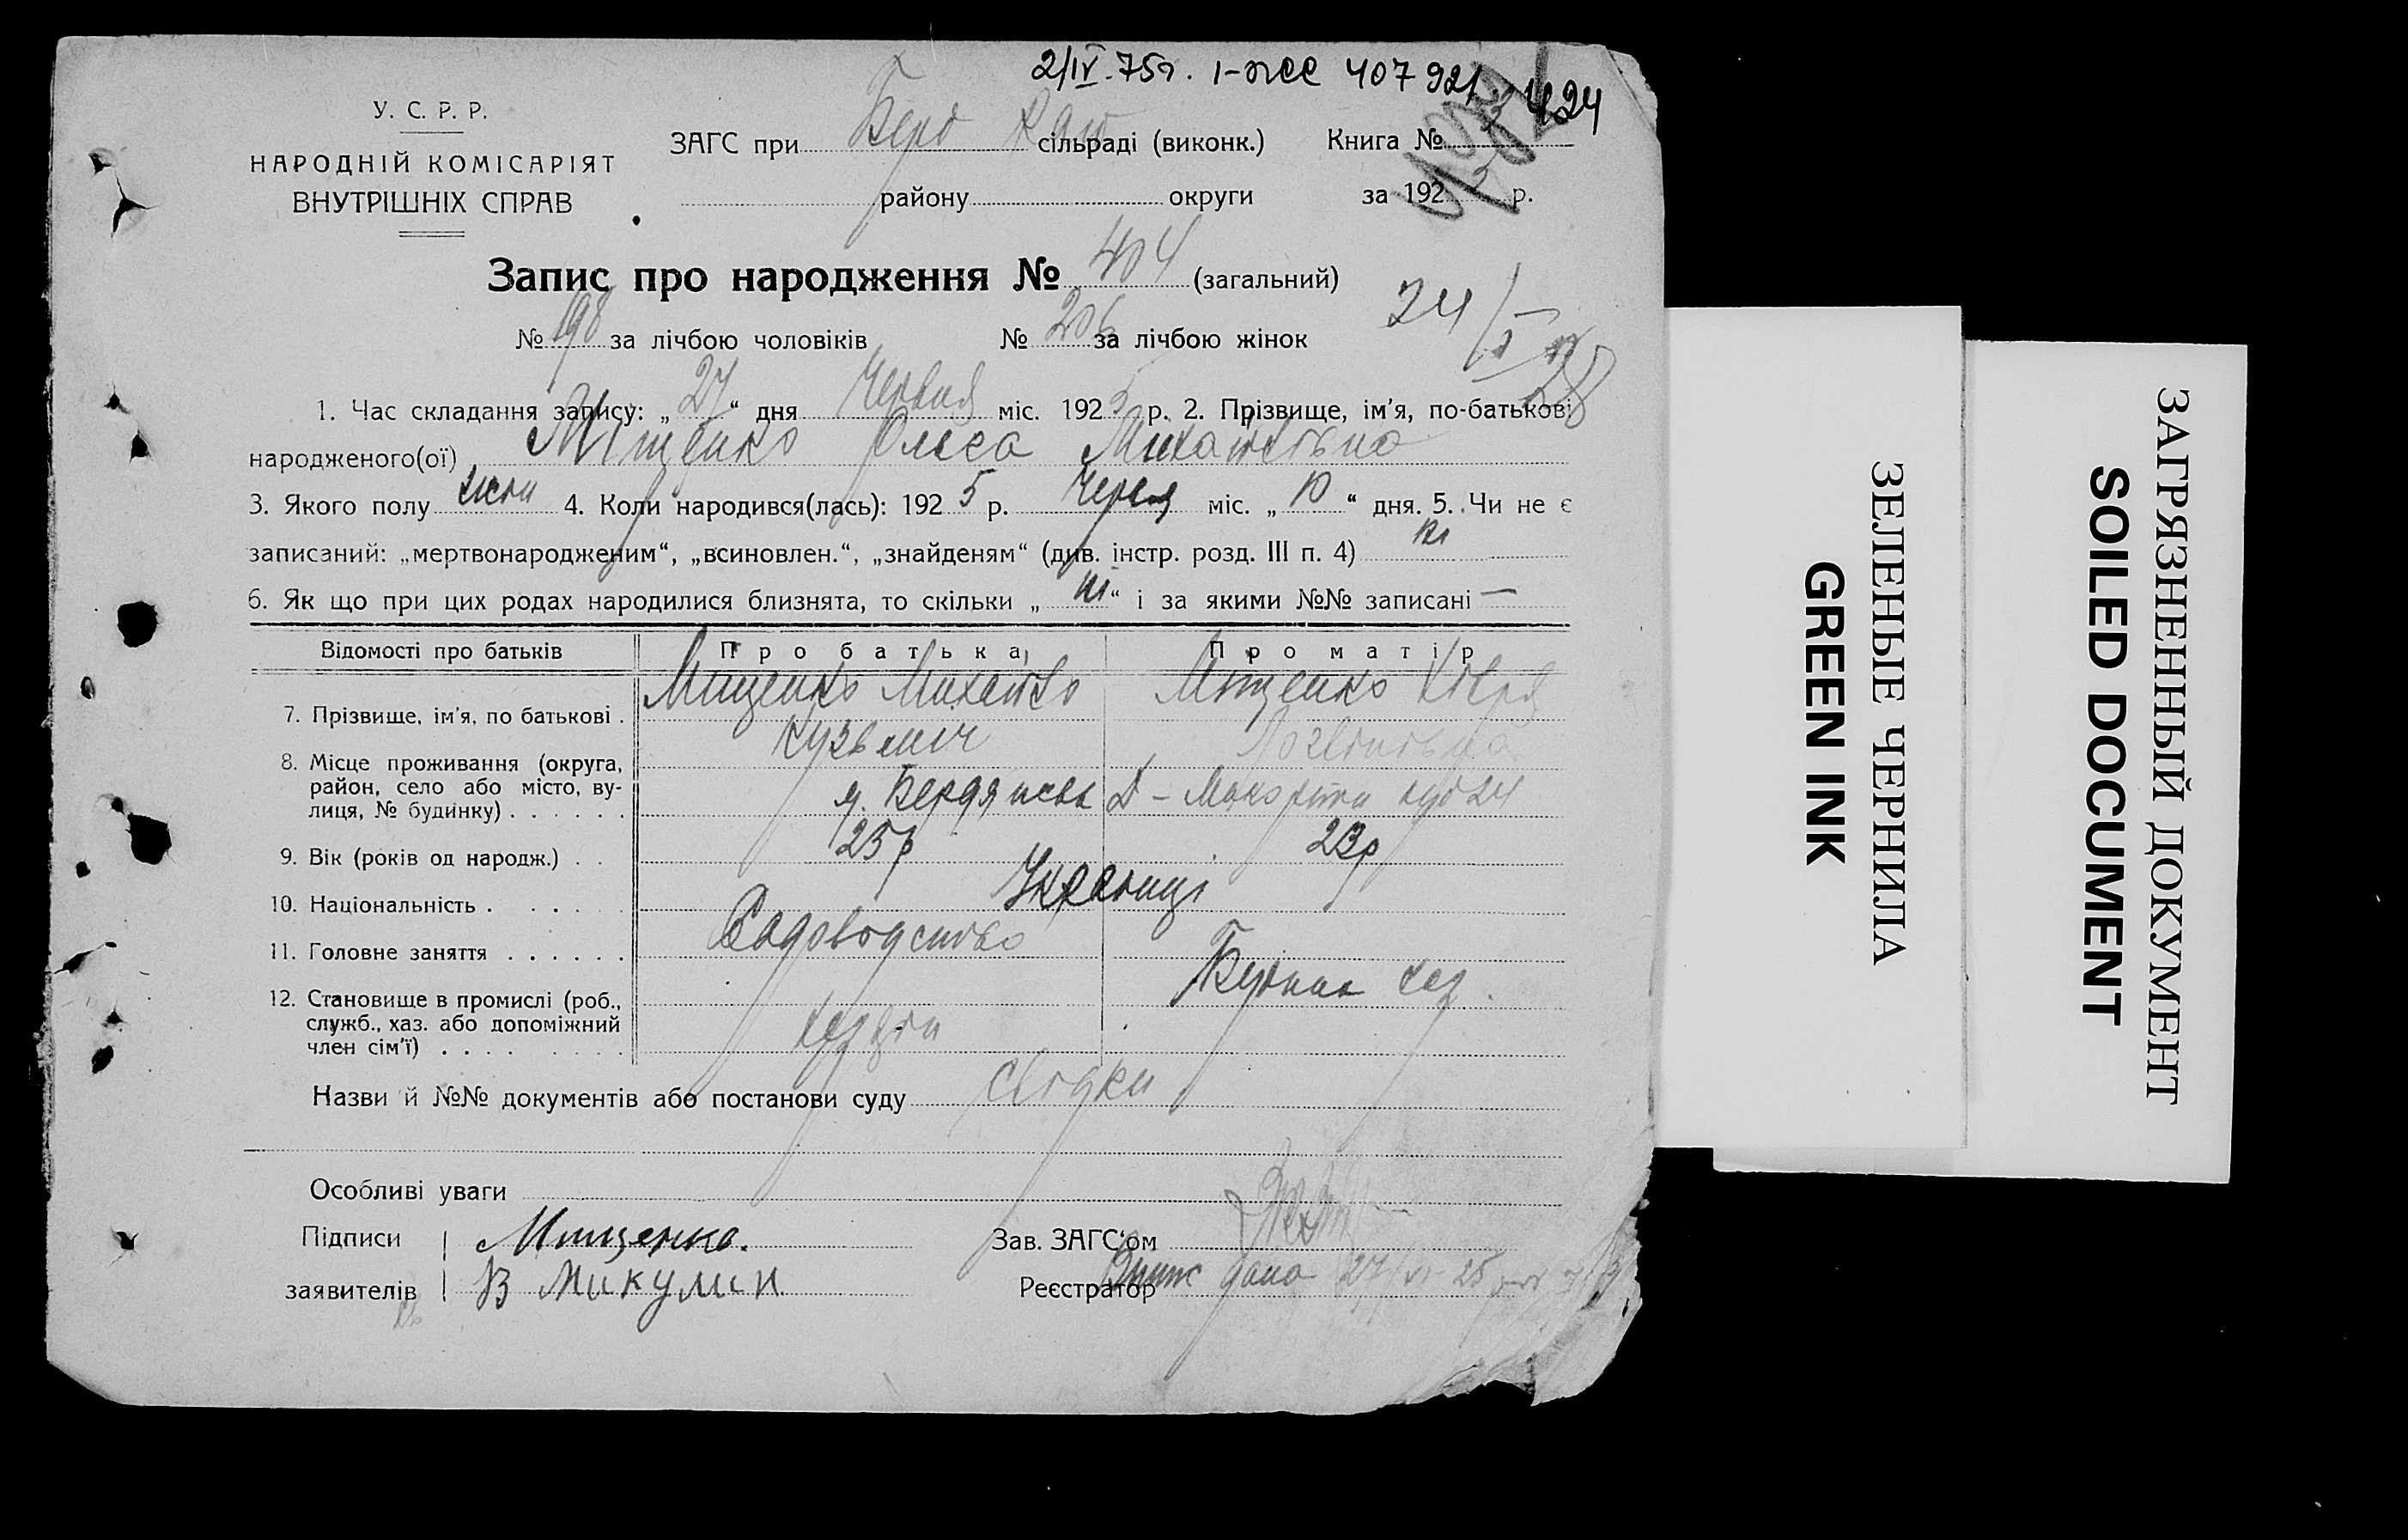 2/IV-75г. 1-ЖС 407921 424
У. С. Р. Р.
НАРОДНІЙ КОМІСАРІЯТ
ВНУТРІШНІХ СПРАВ
ЗАГС при Берд сільраді (виконк.) Книга №
району округи за 192 р.
Запис про народження № 404 (загальний)
№ 198 за лічбою чоловіків № 206 за лічбою жінок
24/V
28
1. Час складання запису: „27“ дня Червня міс. 1925 р. 2. Прізвище, ім'я, по-батькові
народженого(ої) Міщенко Ольга Михайлівна
3. Якого полу жін 4. Коли народився(лась): 1925 р. Червня міс. „10“ дня. 5. Чи не є
записаний: „мертвонародженим“, „всиновлен.“, „знайденям“ (див. інстр. розд. III п. 4) ні
6. Як що при цих родах народилися близнята, то скільки „ні“ і за якими №№ записані —
Відомості про батьків Про батька Про матір
7. Прізвище, ім'я, по батькові . Мищенко Михайло Міщенко Хівря
Кузьмич Логвинівна
8. Місце проживання (округа,
район, село або місто, ву-
лиця, № будинку) . . . . . . м. Бердянськ 24
9. Вік (років од народж.) . . 25р 23р
10. Національність . . . . Українці
11. Головне заняття . . . . . . Садоводство
12. Становище в промислі (роб.,
служб., хаз. або допоміжний
член сім'ї) . . . . . . . .
Назви й №№ документів або постанови суду свідки
Особливі уваги
Підписи Мищенко. Зав. ЗАГС'ом
заявителів В Микулин Реєстратор
дана 27/VI-25
ЗЕЛЕНЫЕ ЧЕРНИЛА
GREEN INK
ЗАГРЯЗНЕННЫЙ ДОКУМЕНТ
SOILED DOCUMENT